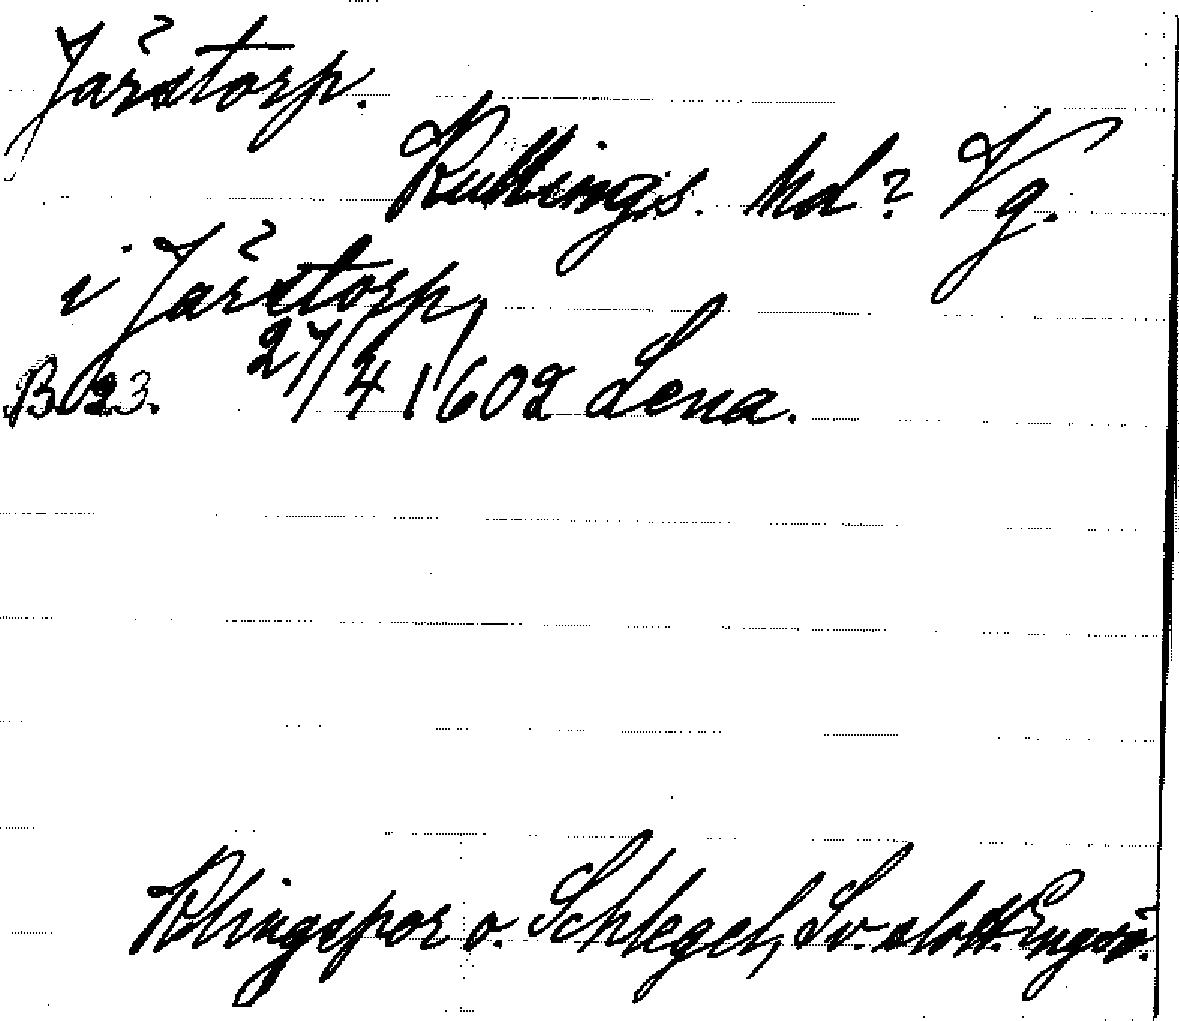 Järstorp.
Kullings. hd? Vg.
i Järstorp
B. 23. 27/4 1602 Lena.
Klingspor o. Schlegel, Sv. slott. Engsö.